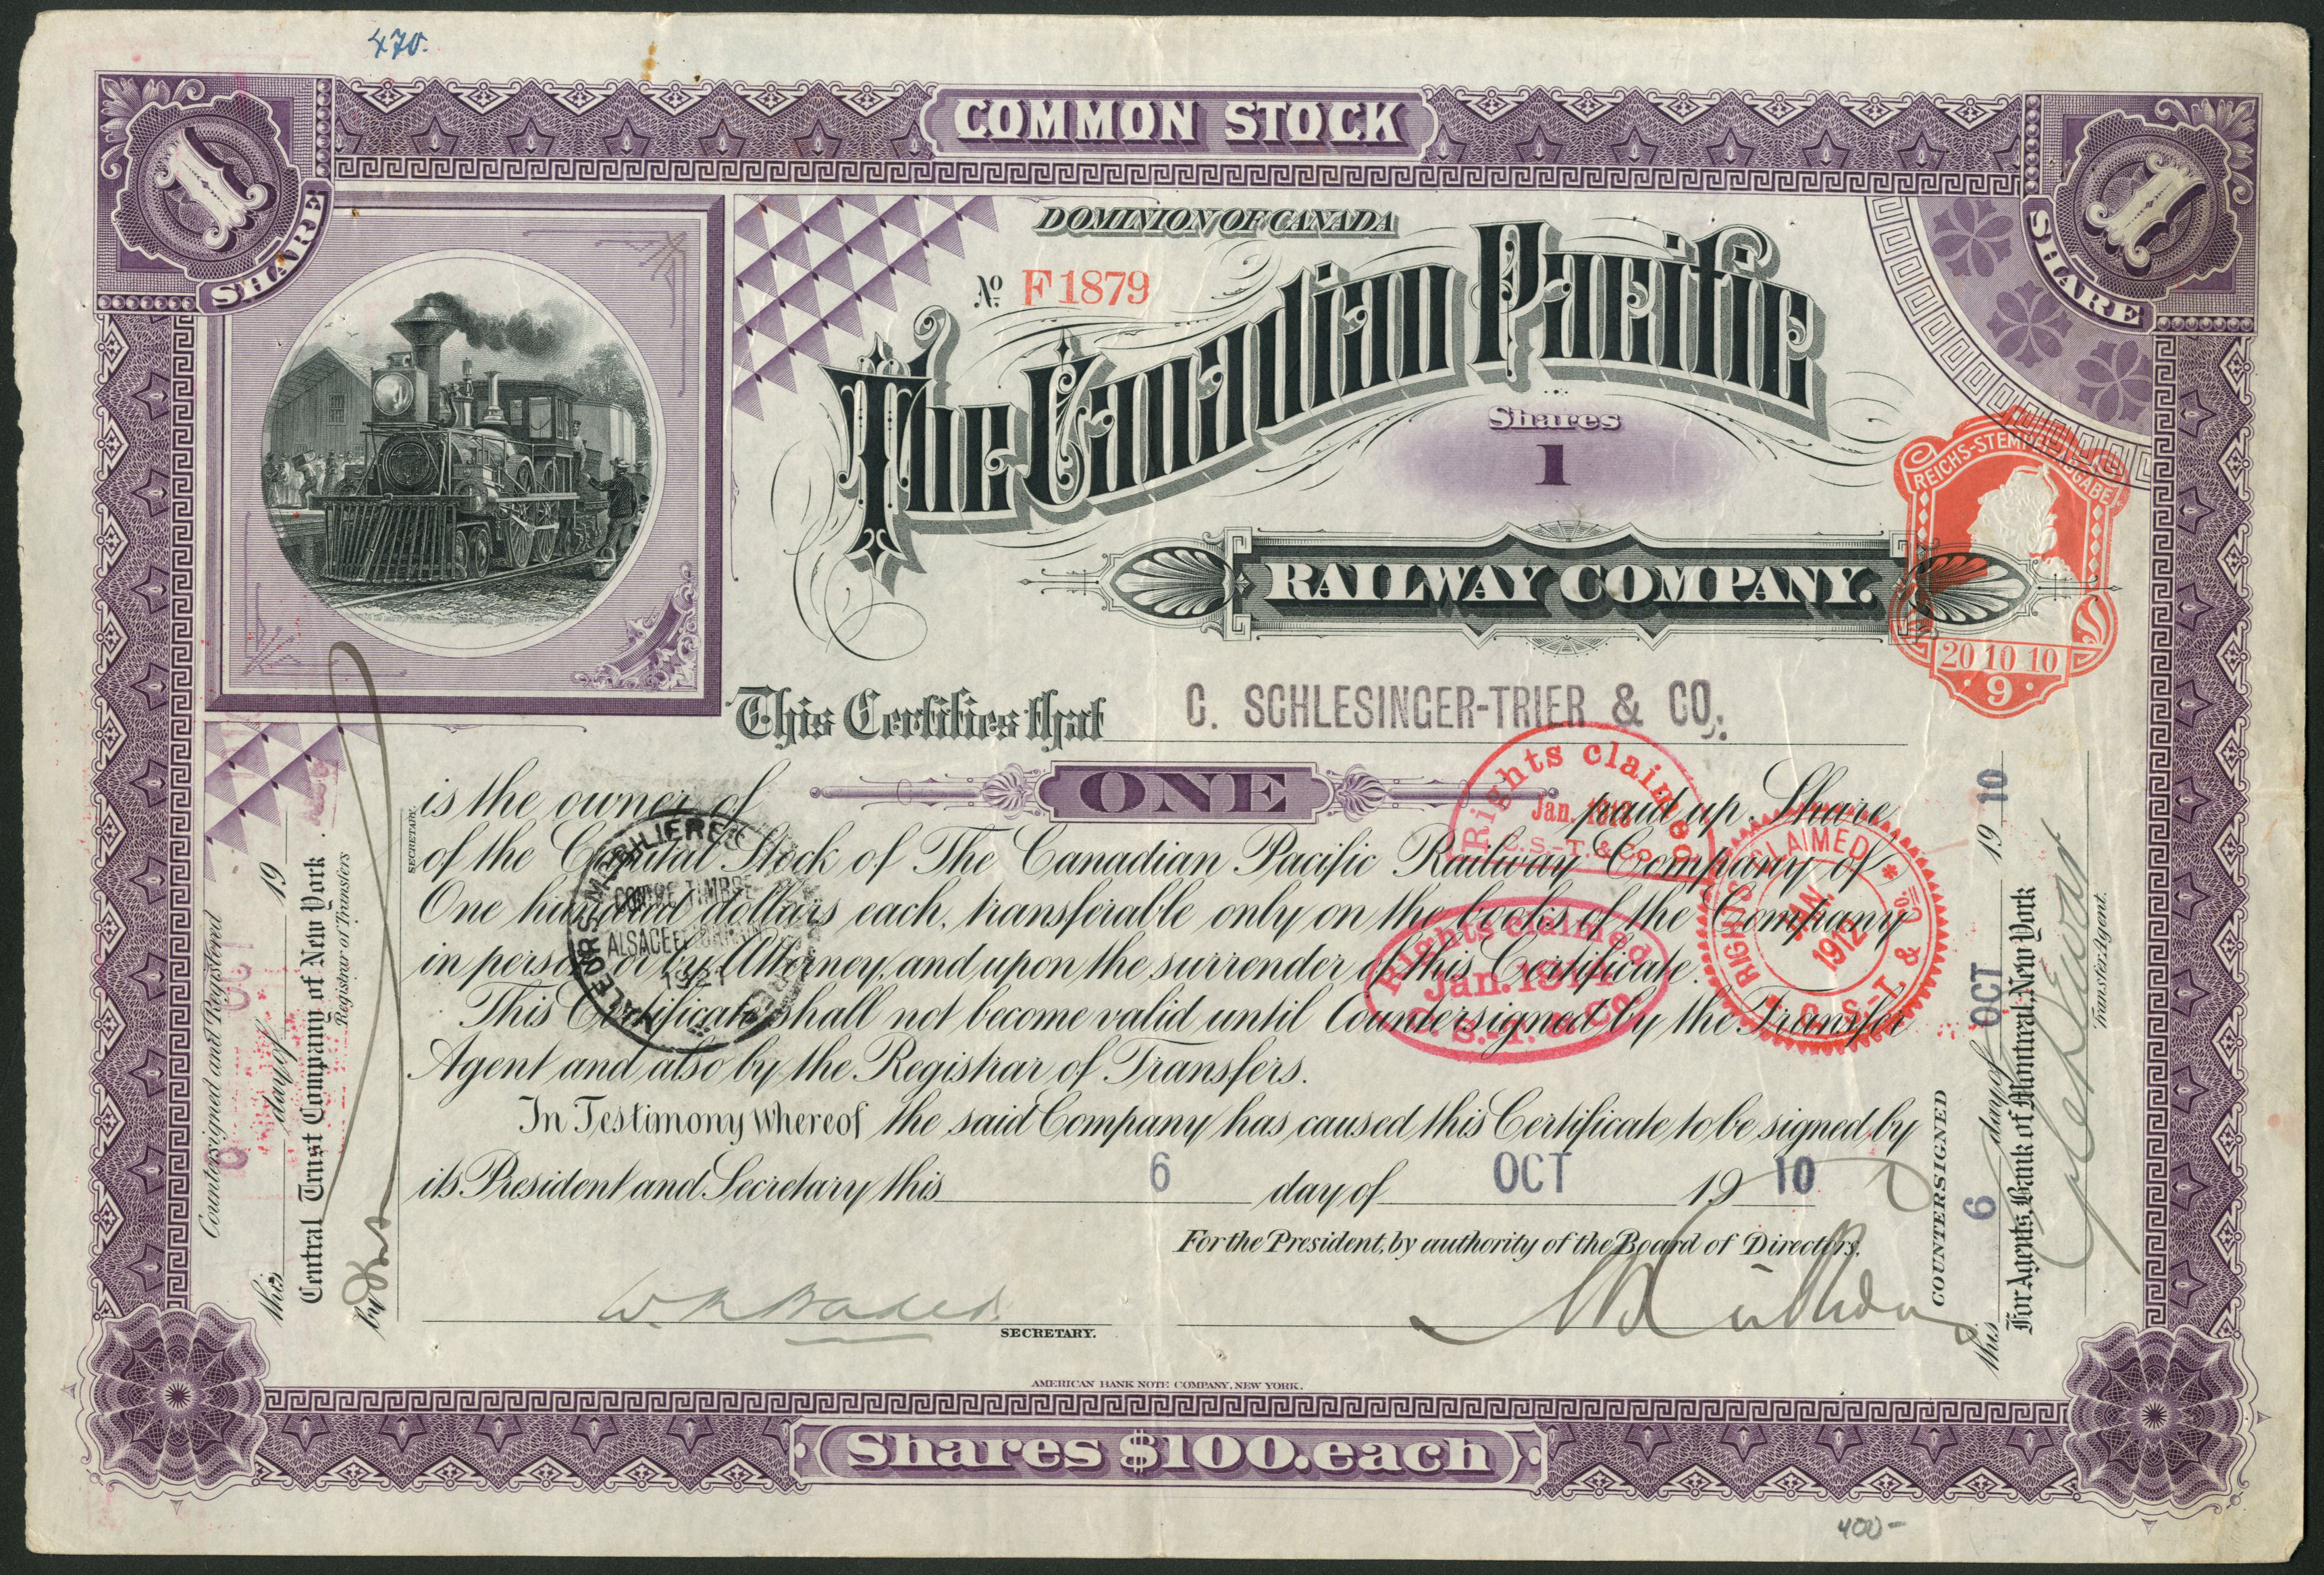 470.
COMMON STOCK
1
SHARE
1
SHARE
DOMINION OF CANADA
No. F1879
The Canadian Pacific
Shares
1
RAILWAY COMPANY.
REICHS-STEMPELABGABE
20 10 10
9
This Certifies that C. SCHLESINGER-TRIER & CO.
is the owner of ONE paid up Share
of the Capital Stock of The Canadian Pacific Railway Company of
One hundred dollars each, transferable only on the books of the Company
in person or by Attorney, and upon the surrender of this Certificate.
This Certificate shall not become valid until Countersigned by the Transfer
Agent and also by the Registrar of Transfers.
In Testimony Whereof the said Company has caused this Certificate to be signed by
its President and Secretary this 6 day of OCT 1910
For the President, by authority of the Board of Directors.
SECRETARY.
AMERICAN BANK NOTE COMPANY, NEW YORK.
Shares $100. each
400-
Rights claimed
Jan.
C. S.-T. & Co.
RIGHTS CLAIMED
JAN.
1912
C. S.-T. & Co.
Rights claimed
Jan. 1914
C. S.-T. & Co.
VALEURS MOBILIERES
CONTRE TIMBRE
ALSACE ET LORRAINE
SECRETARY.
Countersigned and Registered
this day of 19
Central Trust Company of New York
Registrar of Transfers
by
COUNTERSIGNED
this 6 day of OCT 1910
For Agents, Bank of Montreal, New York
Transfer Agent.